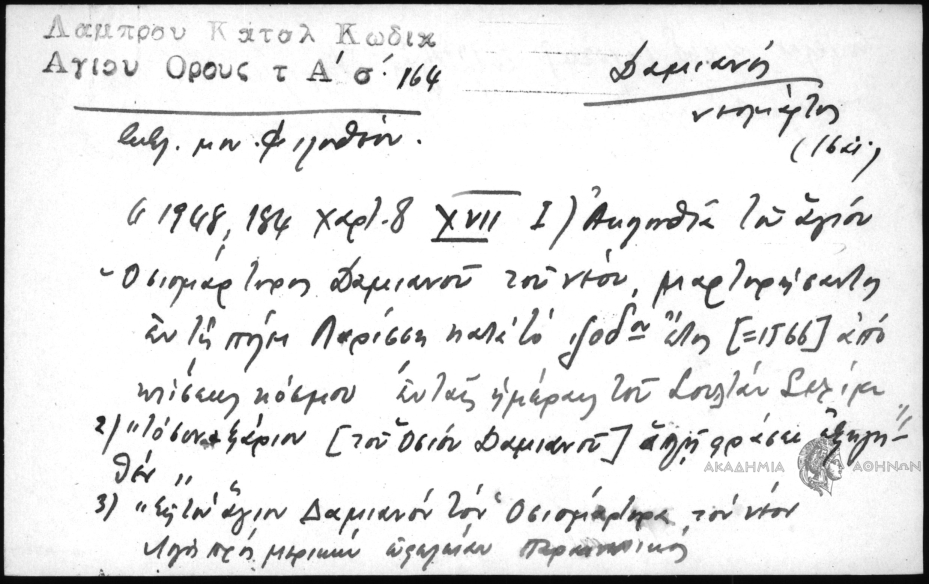 Λαμπρου Καταλ Κωδικ
Αγιου Ορους τ Α΄ σ΄ 164
Δαμιανός
νεομάρτυς
βιβλ. μον. Φιλοθέου.
1948, 184 χαρτ. 8 XVII 1) Ἀκολουθία τοῦ ἁγίου
Ὁσιομάρτυρος Δαμιανοῦ τοῦ νέου, μαρτυρήσαντος
ἐν τῇ πόλει Λαρίσσῃ κατὰ τὸ ἔτος [=1566] ἀπὸ
κτίσεως κόσμου ἐν ταῖς ἡμέραις τοῦ Σουλτὰν Σελίμ
2) "τὸ συναξάριον [τοῦ Ὁσίου Δαμιανοῦ] ἁπλῇ φράσει ἐξηγη-
θέν "
ΑΚΑΔΗΜΙΑ ΑΘΗΝΩΝ
3) "Εἰς τὸν ἅγιον Δαμιανὸν τὸν Ὁσιομάρτυρα τὸν νέον
λόγος πρὸς μερικὴν ὠφέλειαν παραινετικός